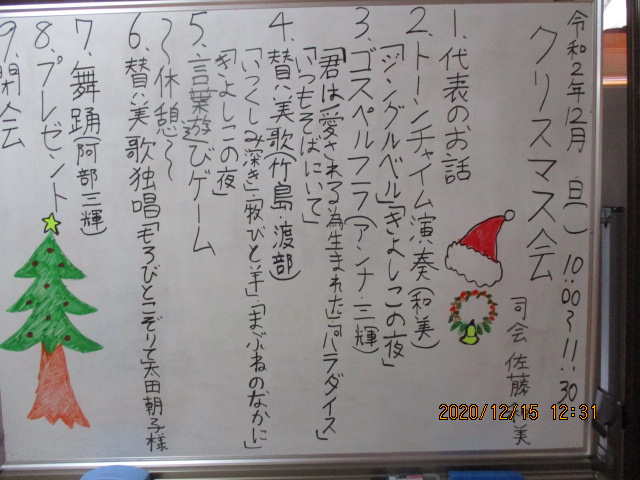 令和2年12月 日( ) 10:00〜11:30
クリスマス会
司会 佐藤 美
1. 代表のお話
2. トーンチャイム演奏(和美)
「ジングルベル」「きよしこの夜」
3. ゴスペルフラ(アンナ・三輝)
「君は愛される為生まれた」「パラダイス」
「いつもそばにいて」
4. 賛美歌(竹島・渡部)
「いつくしみ深き」「我びと羊」「まぶねのなかに」
「きよしこの夜」
5. 言葉遊びゲーム
〜休憩〜
6. 賛美歌独唱「もろびとこぞりて」太田朝子様
7. 舞踊(阿部三輝)
8. プレゼント
9. 閉会
2020/12/15 12:31